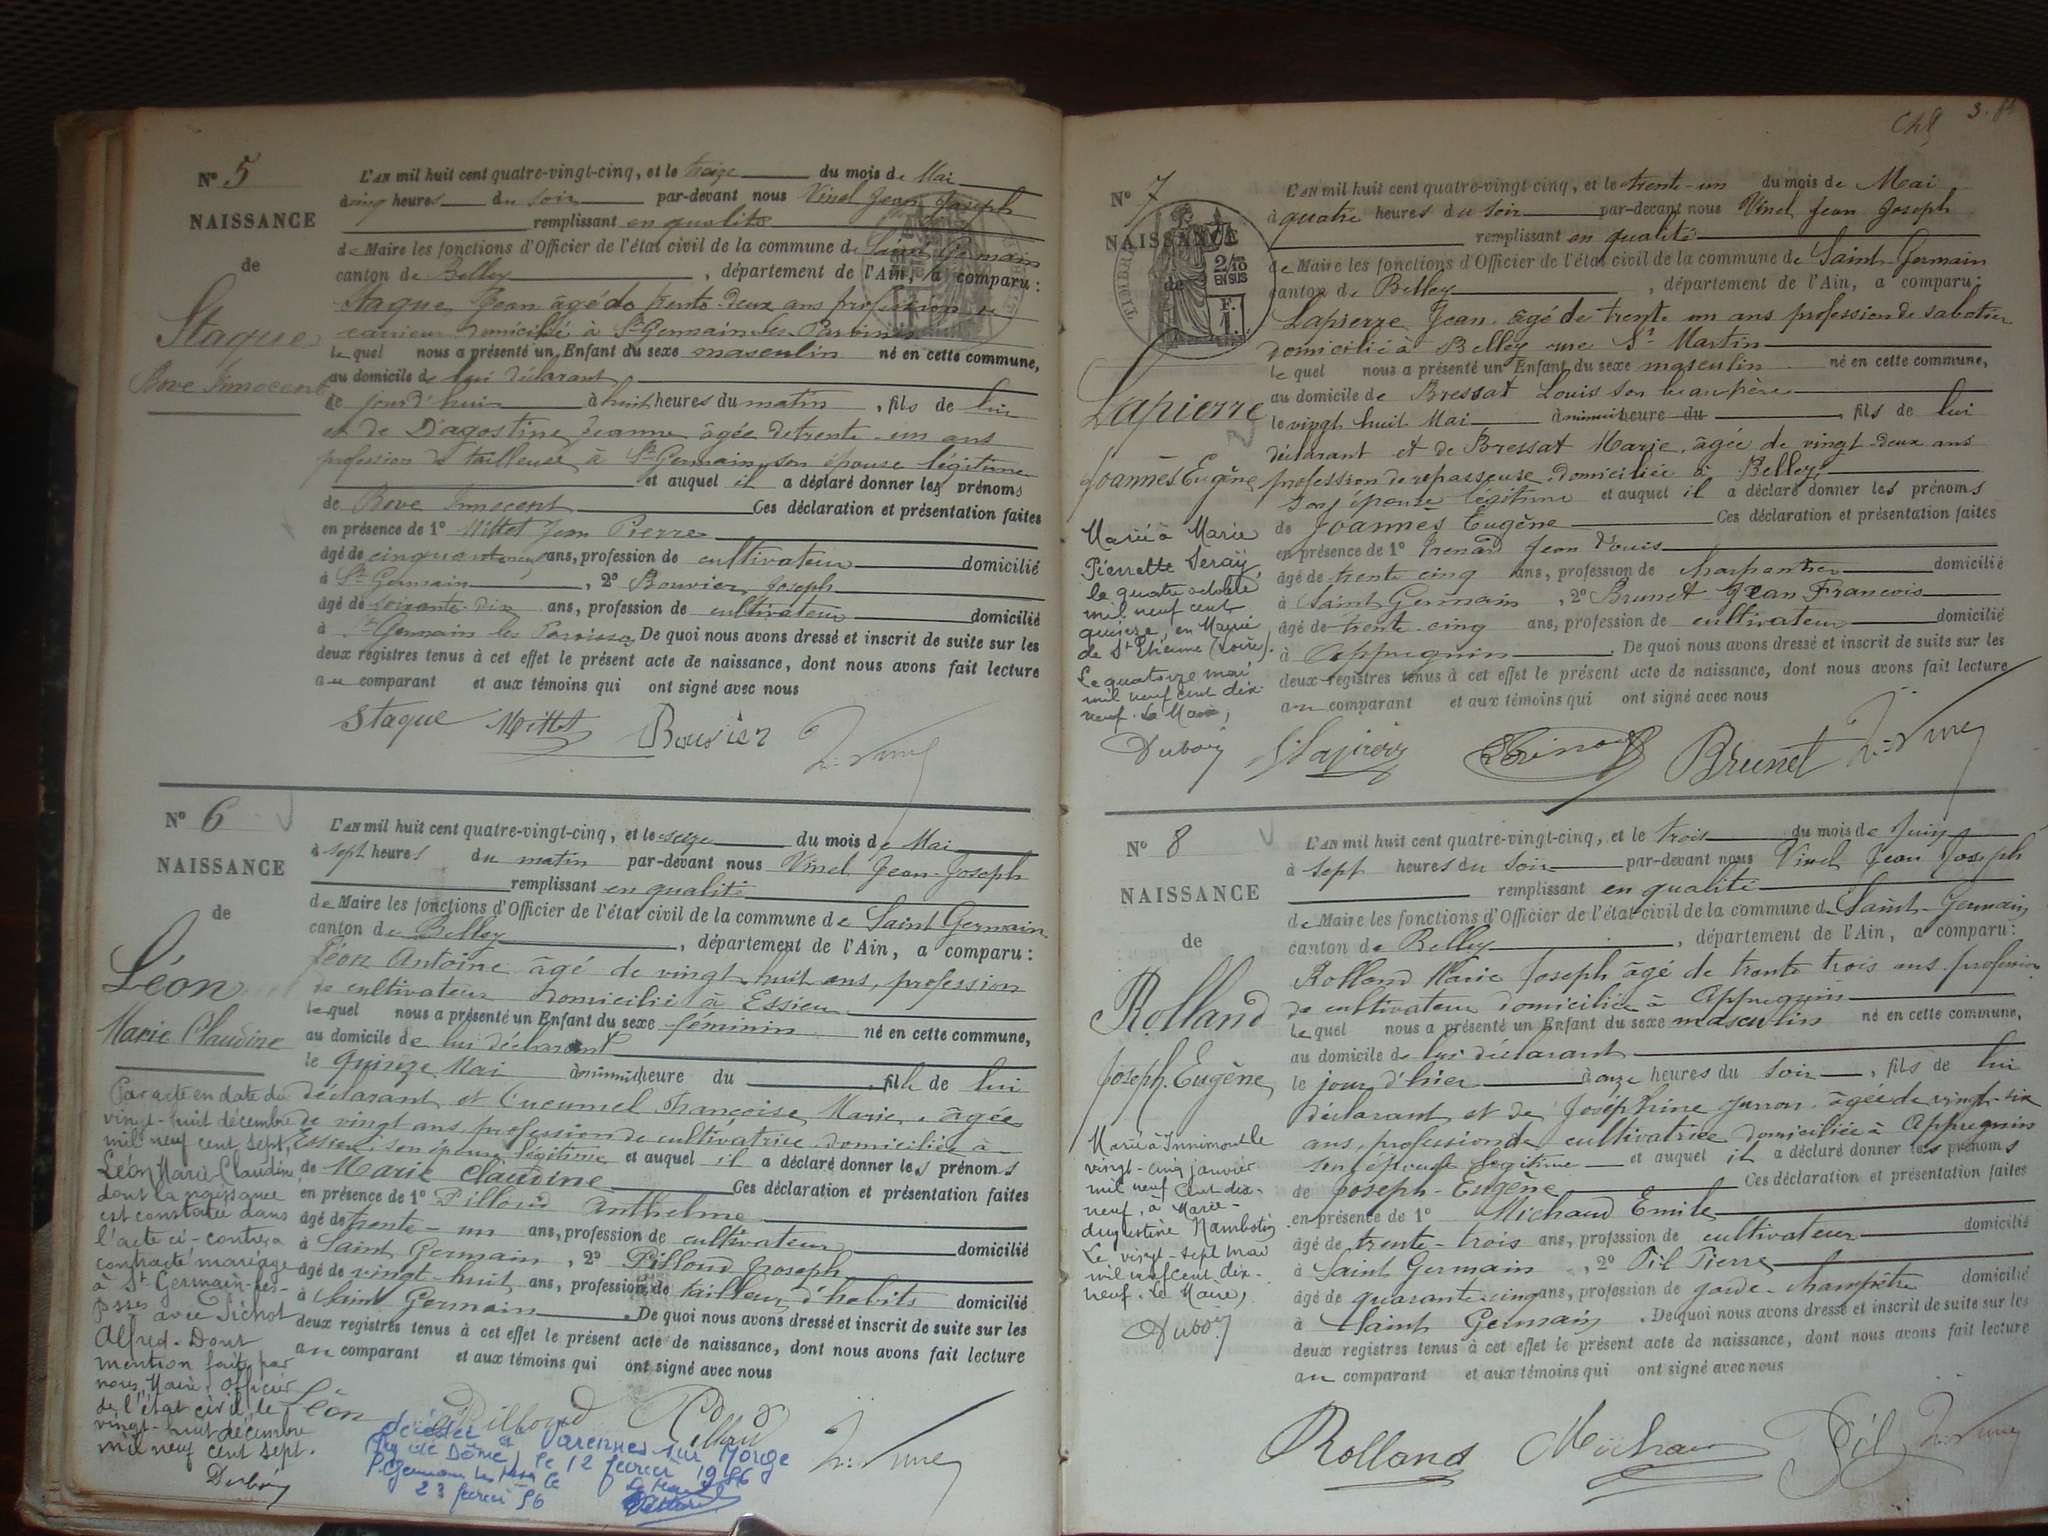 Nº 5
NAISSANCE
de
Staque
Bove Innocent
L'AN mil huit cent quatre-vingt-cinq, et le treize du mois de Mai
à cinq heures du soir par-devant nous Vinel Jean Joseph
remplissant en qualité
de Maire les fonctions d'Officier de l'état civil de la commune de Saint Germain
canton de Belley, département de l'Ain, a comparu :
Staque Jean âgé de trente-deux ans profession de
domicilié à St Germain les Paroisses
le quel nous a présenté un Enfant du sexe masculin né en cette commune,
au domicile de lui déclarant
de jour d'hui à huit heures du matin, fils de lui
et de D'agostine Jeanne âgée de trente-un ans
profession de tailleuse à St Germain, son épouse légitime
et auquel il a déclaré donner les prénoms
de Bove Innocent Ces déclaration et présentation faites
en présence de 1º Mittet Jean Pierre
âgé de ans, profession de cultivateur domicilié
à St Germain, 2º Bouvier Joseph
âgé de soixante-dix ans, profession de cultivateur domicilié
à St Germain les Paroisses De quoi nous avons dressé et inscrit de suite sur les
deux registres tenus à cet effet le présent acte de naissance, dont nous avons fait lecture
au comparant et aux témoins qui ont signé avec nous
Staque Mittet Bouvier
Nº 6
NAISSANCE
de
Léon
Marie Claudine
L'AN mil huit cent quatre-vingt-cinq, et le seize du mois de Mai
à sept heures du matin par-devant nous Vinel Jean-Joseph
remplissant en qualité
de Maire les fonctions d'Officier de l'état civil de la commune de Saint Germain
canton de Belley, département de l'Ain, a comparu :
Léon Antoine âgé de vingt-huit ans, profession
de cultivateur domicilié à Essieu
le quel nous a présenté un Enfant du sexe féminin né en cette commune,
au domicile de lui déclarant
le quinze Mai à minuit heure du, fille de lui
déclarant et Cucumel Françoise Marie, âgée
de vingt ans, profession de cultivatrice domiciliée à
Essieu, son épouse légitime et auquel il a déclaré donner les prénoms
de Marie Claudine Ces déclaration et présentation faites
en présence de 1º Pilloud Anthelme
âgé de trente-un ans, profession de cultivateur domicilié
à Saint Germain, 2º Pilloud Joseph
âgé de vingt-huit ans, profession de tailleur d'habits domicilié
à Saint Germain De quoi nous avons dressé et inscrit de suite sur les
deux registres tenus à cet effet le présent acte de naissance, dont nous avons fait lecture
au comparant et aux témoins qui ont signé avec nous
Léon Pilloud Pilloud
Par acte en date du
vingt-huit décembre
mil neuf cent sept,
Léon Marie-Claudine
dont la naissance
est constatée dans
l'acte ci-contre a
contracté mariage
à St Germain-les-
psses avec Pichot
Alfred. Dont
mention faite par
nous, Maire, Officier
de l'état civil, le
vingt-huit décembre
mil neuf cent sept.
Dubois
Décédée à Varennes-sur Morge
(Puy de Dôme) le 12 février 1956
St Germain les Psses le
23 février 56
Le Maire
Chg 3.
Nº 7
NAISSANCE
de
TIMBRE
2/10
EN SUS
F.
1.
Lapierre
Joannès Eugène
L'AN mil huit cent quatre-vingt-cinq, et le trente-un du mois de Mai
à quatre heures du soir par-devant nous Vinel Jean Joseph
remplissant en qualité
de Maire les fonctions d'Officier de l'état civil de la commune de Saint-Germain
canton de Belley, département de l'Ain, a comparu :
Lapierre Jean âgé de trente un ans profession de sabotier
domicilié à Belley rue St Martin
le quel nous a présenté un Enfant du sexe masculin né en cette commune,
au domicile de Bressat Louis son beau-père
le vingt huit Mai à minuit heure du, fils de lui
déclarant et de Bressat Marie, âgée de vingt-deux ans
profession de repasseuse, domiciliée à Belley
son épouse légitime et auquel il a déclaré donner les prénoms
de Joannès Eugène Ces déclaration et présentation faites
en présence de 1º Trenard Jean Louis
âgé de trente cinq ans, profession de charpentier domicilié
à Saint Germain, 2º Brunet Jean François
âgé de trente-cinq ans, profession de cultivateur domicilié
à Appregnin De quoi nous avons dressé et inscrit de suite sur les
deux registres tenus à cet effet le présent acte de naissance, dont nous avons fait lecture
au comparant et aux témoins qui ont signé avec nous
Marié à Marie
Pierrette Seray,
le quatre octobre
mil neuf cent
quinze, en Mairie
de St Etienne (Loire).
Le quatorze mai
mil neuf cent dix-
neuf. Le Maire,
Dubois Lapierre Brunet
Nº 8
NAISSANCE
de
Rolland
Joseph-Eugène
L'AN mil huit cent quatre-vingt-cinq, et le trois du mois de Juin
à sept heures du soir par-devant nous Vinel Jean Joseph
remplissant en qualité
de Maire les fonctions d'Officier de l'état civil de la commune de Saint-Germain
canton de Belley, département de l'Ain, a comparu :
Rolland Marie Joseph âgé de trente trois ans profession
de cultivateur domicilié à Appregnin
le quel nous a présenté un Enfant du sexe masculin né en cette commune,
au domicile de lui déclarant
le jour d'hier à onze heures du soir, fils de lui
déclarant et de Joséphine Junon âgée de vingt-six
ans, profession de cultivatrice domiciliée à Appregnin
son épouse légitime et auquel il a déclaré donner les prénoms
de Joseph-Eugène Ces déclaration et présentation faites
en présence de 1º Michaud Emile
âgé de trente-trois ans, profession de cultivateur domicilié
à Saint Germain, 2º Pil Pierre
âgé de quarante-cinq ans, profession de garde-champêtre domicilié
à Saint Germain. De quoi nous avons dressé et inscrit de suite sur les
deux registres tenus à cet effet le présent acte de naissance, dont nous avons fait lecture
au comparant et aux témoins qui ont signé avec nous
Marié à Innimont le
vingt-cinq janvier
mil neuf cent dix-
neuf, à Marie-
Augustine Nambotin
Le vingt-sept mai
mil neuf cent dix-
neuf. Le Maire,
Dubois
Rolland Michaud Pil